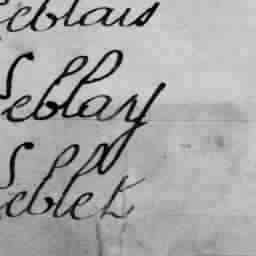 Leblais
Leblay
Leblet